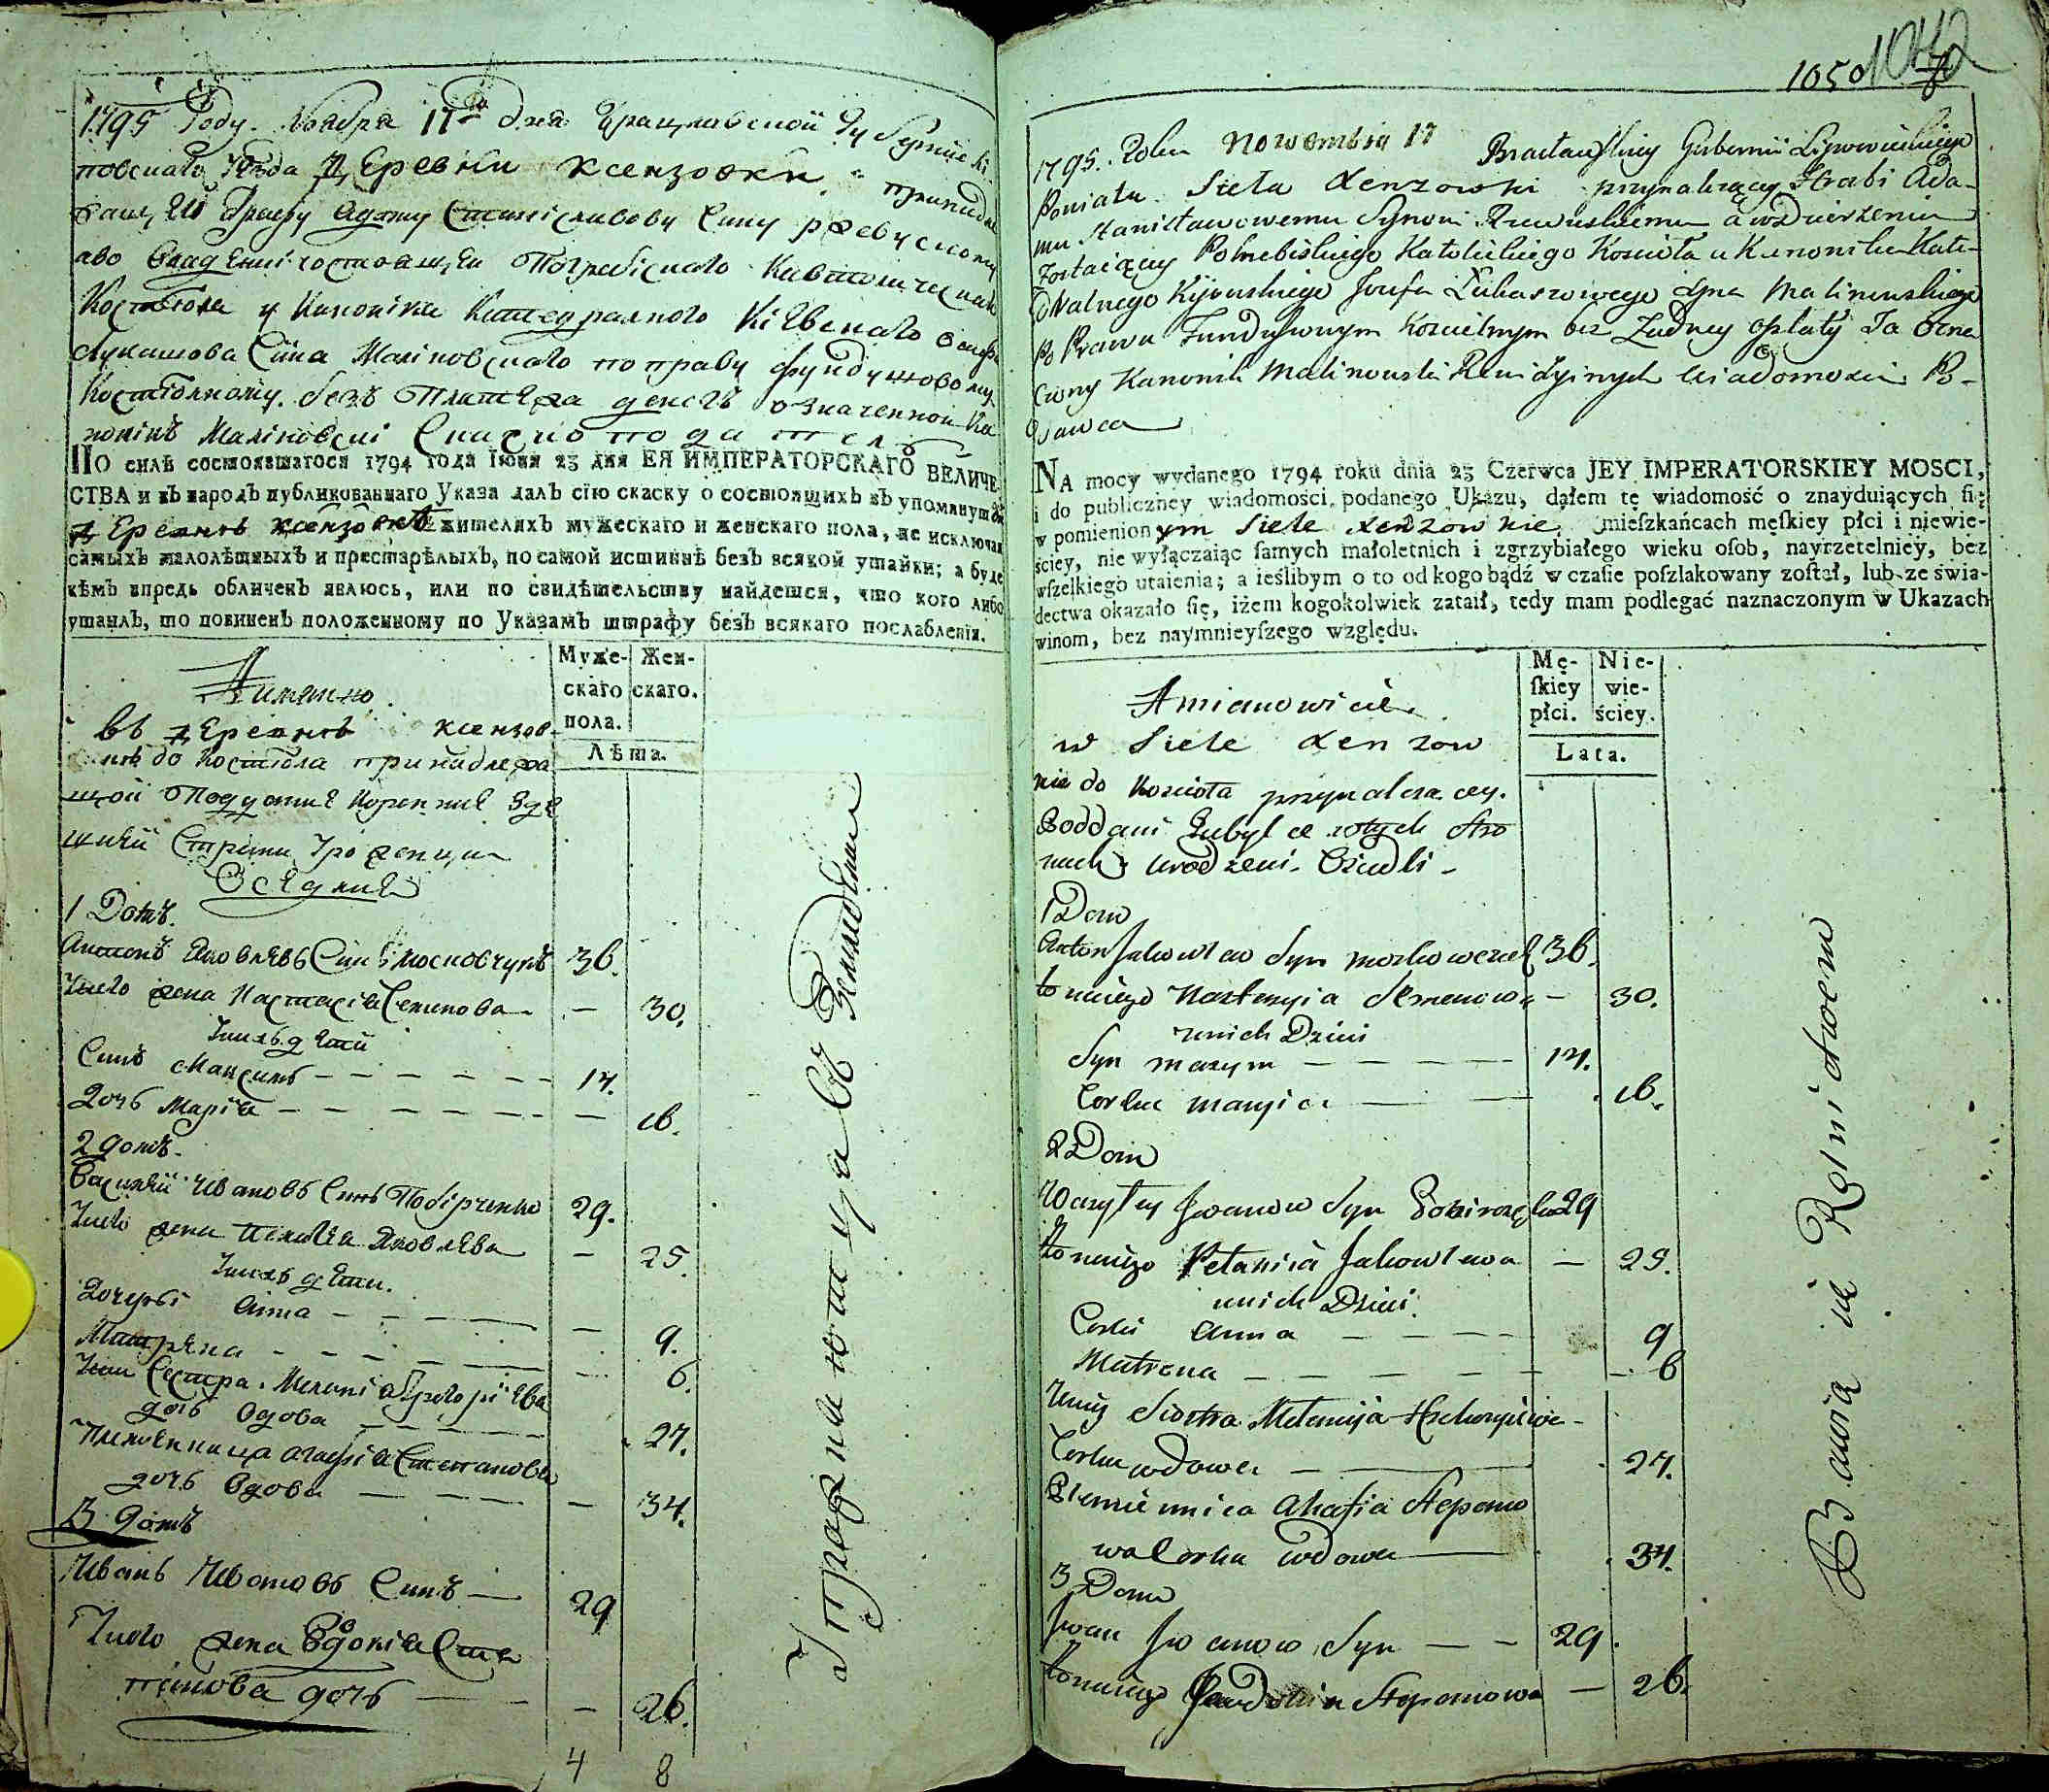 1795 Году Ноября 17го дня Брацлавской Губернии Ли-
повскаго уезда деревни Ксензовки принадле-
жащей Графу Адаму Станиславову Сину Ржевускому
Костіола и Каноника Катедралного Кіевскаго
Лукашова Сина Маліновскаго по праву фундушовому
Костіолному. безъ Платежа денегъ означенной Ка-
нонікъ Маліновскі Скаску подател
ПО силѣ состоявшагося 1794 года Іюня 23 дня ЕЯ ИМПЕРАТОРСКАГО ВЕЛИЧЕ-
СТВА и въ народъ публикованнаго Указа далъ сїю скаску о состоящихъ въ упомянутой
деревнѣ Ксензовкѣ жителяхъ мужескаго и женскаго пола, не исключая
самыхъ малолѣтныхъ и престарѣлыхъ, по самой истиннѣ безъ всякой утайки; а буде
кѣмъ впредь обличенъ явлюсь, или по свидѣтельству найдется, что кого либо
утаилъ, то повиненъ положенному по Указамъ штрафу безъ всякаго послабленїя.
Муже- Жен-
скаго скаго.
пола.
Лѣта.
Аимянно
въ деревнѣ ксензов-
кѣ до Костіола принадлежа
щой
Оседлие
1 Домъ.
Антонъ Яковлевъ Синъ Московчукъ 36.
Унего жена Настасія Семенова — 30.
Унихъ дети
Синъ Максимъ — 14.
Дочь Марія — 16.
2 домъ.
Василий Ивановъ Синъ Побірченко 29.
Унего жена Пелагея Яковлева — 25.
Унихъ дети.
Дочери Анна — 9.
Матрена — 6.
Сестра Меланія Григоріева
дочь вдова — 27.
Племенница Агафія Степанова
дочь вдова — 34.
3 домъ
Иванъ Ивановъ Синъ — 29
Унего жена Євдокія Сте
панова дочь — 26.
4 8
Упражняются въ Земледелии
1050 1042
1795. Roku Nowembra 17 Bracławskiey Gubernii Lipowieckiego
Powiatu Sieła Xenzowki przynalezący Hrabi Ada-
mu Stanisławowemu Synowi Rzewuskiemu a w dzierżeniu
Zostaiący Pohrebiskiego Katolickiego Kosciola u Kanonika Kate-
dralnego Kijowskiego Jozefa Łukaszowego Syna Malinowskiego
Po Prawu Funduszowym Koscielnym bez Zadney opłaty Ja Ozna
czony Kanonik Malinowski Rewizyinych Wiadomosci Po-
dawca
NA mocy wydanego 1794 roku dnia 23 Czerwca JEY IMPERATORSKIEY MOSCI,
i do publiczney wiadomości podanego Ukazu, dałem tę wiadomość o znayduiących ſię
w pomienionym Siele Xenzowkie mieſzkańcach męſkiey płci i niewie-
ściey, nie wyłączaiąc ſamych małoletnich i zgrzybiałego wieku oſob, nayrzetelniey, bez
wſzelkiego utaienia; a ieślibym o to od kogo bądź w czaſie poſzlakowany zoſtał, lub ze świa-
dectwa okazało ſię, iżem kogokolwiek zataił, tedy mam podlegać naznaczonym w Ukazach
winom, bez naymnieyſzego względu.
Mę- Nie-
ſkiey wie-
płci. ściey.
Lata.
Amianowicie
w Siele Xenzow
kie do Kosciola przynalezacey.
Poddani w tych Stro
nach urodzeni. Osiadli
1 Dom
Anton Jakowlew Syn Moskowczuk 36.
U niego Nastasyia Semenowa — 30.
U nich Dzieci
Syn Maxym — 14.
Corka Maryia — 16.
2 Dom
Wasyley Jwanow Syn Pobirczenko 29
U niego Pelahia Jakowlewa — 25.
U nich Dzieci
Corki Anna — 9
Matrona — 6
Siostra Melanija Hrehoryiewa
Corka wdowa — 27.
Plemiennica Ahafia Stepano
wa Corka wdowa — 34.
3 Dom
Jwan Jwanow Syn — 29.
U niego Jewdokia Stepanowa — 26.
Bawią się Rolnictwem